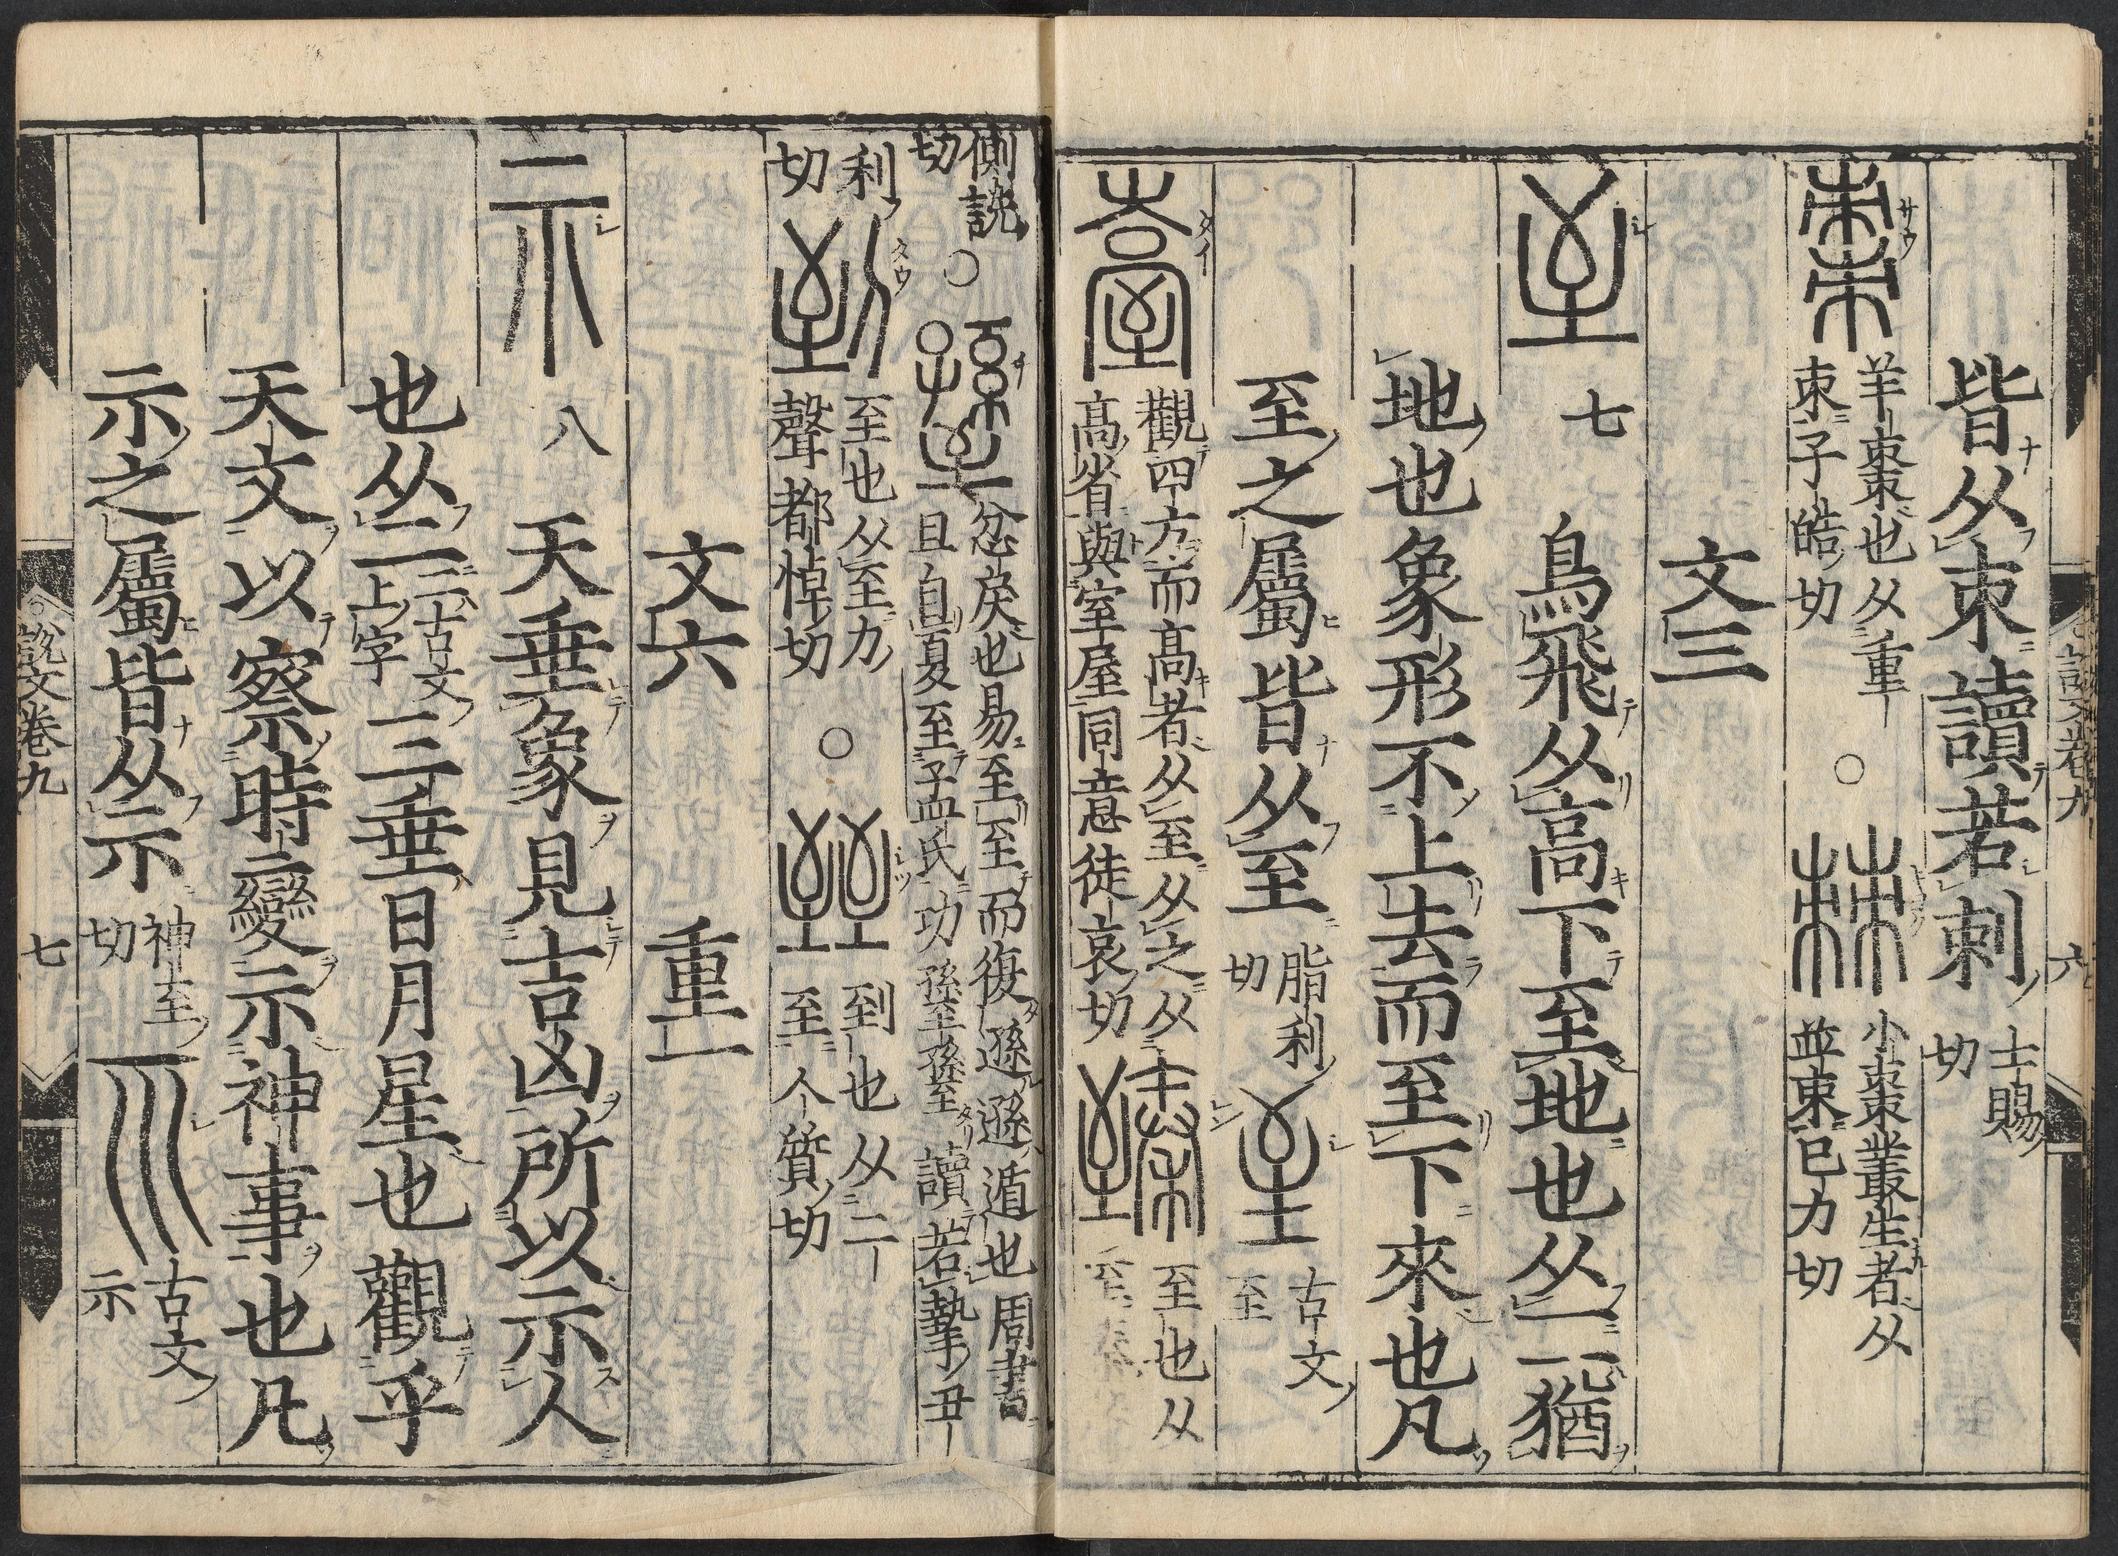 皆从朿讀若刺士賜切
棗羊棗也从重朿子皓切○棘小棗叢生者从並朿已力切
文三
至七鳥飛从高下至地也从一一猶
地也象形不上去而至下來也凡
至之屬皆从至脂利切古文至
臺觀四方而高者从至从之从高省與室屋同意徒哀切臻至也从至秦
側詵切○忿戾也易至至而復遜遜遁也周書曰有夏至子血氏功孫至孫至讀若摯丑
利切到至也从至力聲都悼切○臸到也从二至人質切
文六 重一
示八天垂象見吉凶所以示人
也从二二古文上字三垂日月星也觀乎
天文以察時變示神事也凡
示之屬皆从示神至切古文示
說文卷九 六
說文卷九 七